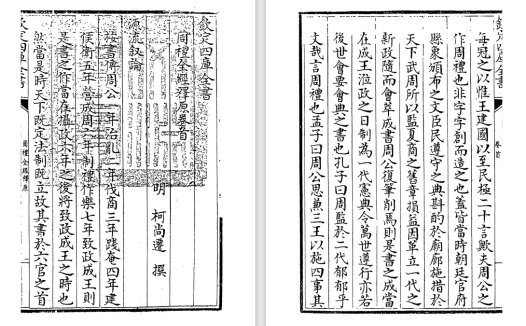 欽定四庫全書
周禮全經釋原卷首
明 柯尚遷 撰
源流叙論
按書傳周公一年治亂二年伐商三年踐奄四年建
侯衛五年營成周六年制禮作樂七年致政成王則
是書之作當在攝政六年之後將致政成王之時也
然當是時天下既定法制既立故其書於六官之首
欽定四庫全書
周禮全經釋原
欽定四庫全書
卷首
每冠之以惟王建國以至民極二十言歟夫周公之
作周禮也非字字創而造之也蓋皆當時朝廷官府
縣象頒布之文臣民遵守之典斟酌於廟廊施措於
天下武周所以監夏商之舊章損益因革立一代之
新政隨而會萃成書周公復筆削焉則是書之成當
在成王涖政之日制為一代憲典令萬世遵行亦若
後世會要會典之書也孔子曰周監於二代郁郁乎
文哉言周禮也孟子曰周公思兼三王以施四事其